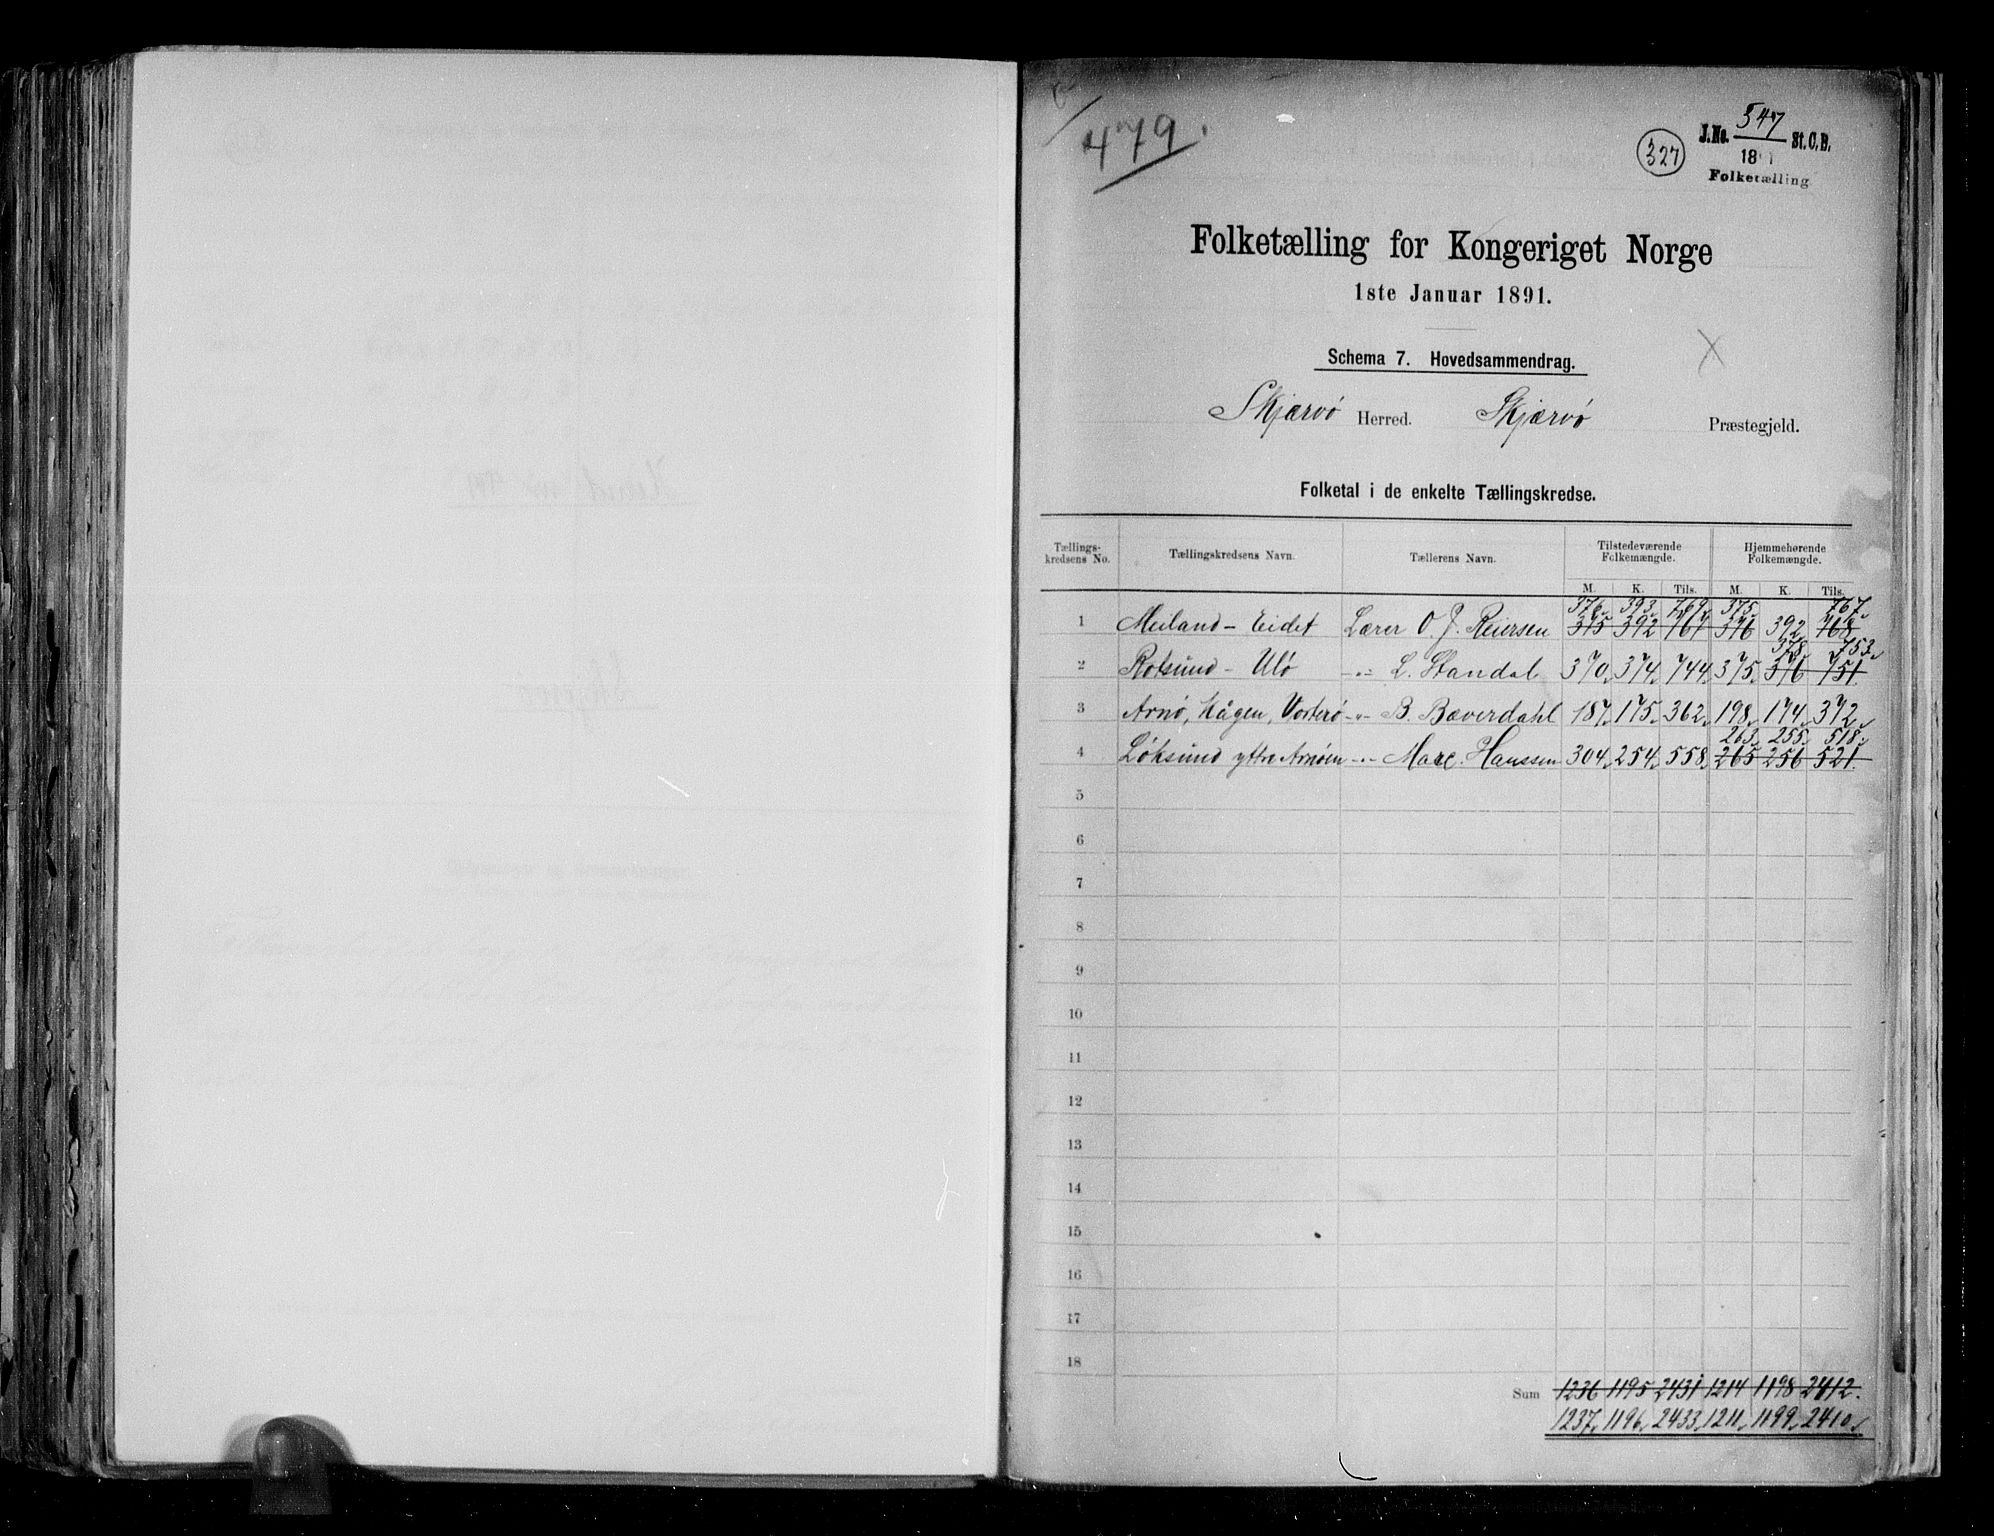 479.
327
J.No. 547 St.C.B.
18
Folketælling
Folketælling for Kongeriget Norge
1ste Januar 1891.
Schema 7. Hovedsammendrag.
Skjærvø Herred. Skjærvø Præstegjeld.
Folketal i de enkelte Tællingskredse.
Tællingskredsens No. Tællingskredsens Navn. Tællerens Navn. Tilstedeværende Folkemængde. Hjemmehørende Folkemængde.
M. K. Tils. M. K. Tils.
376 393 769 375 767
1 Meiland - Eidet Lærer O. J. Reiersen 375 392 767 376 392 768
378 753
2 Rotsund - Ulø -"- L. Standal 370 374 744 375 376 751
3 Arnø, Kågen, Vorterø -"- B. Bæverdahl 187 175 362 198 174 372
263 255 518
4 Løksund ytre Arnøen -"- Hanssen 304 254 558 265 256 521
5
6
7
8
9
10
11
12
13
14
15
16
17
18
Sum 1236 1195 2431 1214 1198 2412.
1237 1196 2433 1211 1199 2410